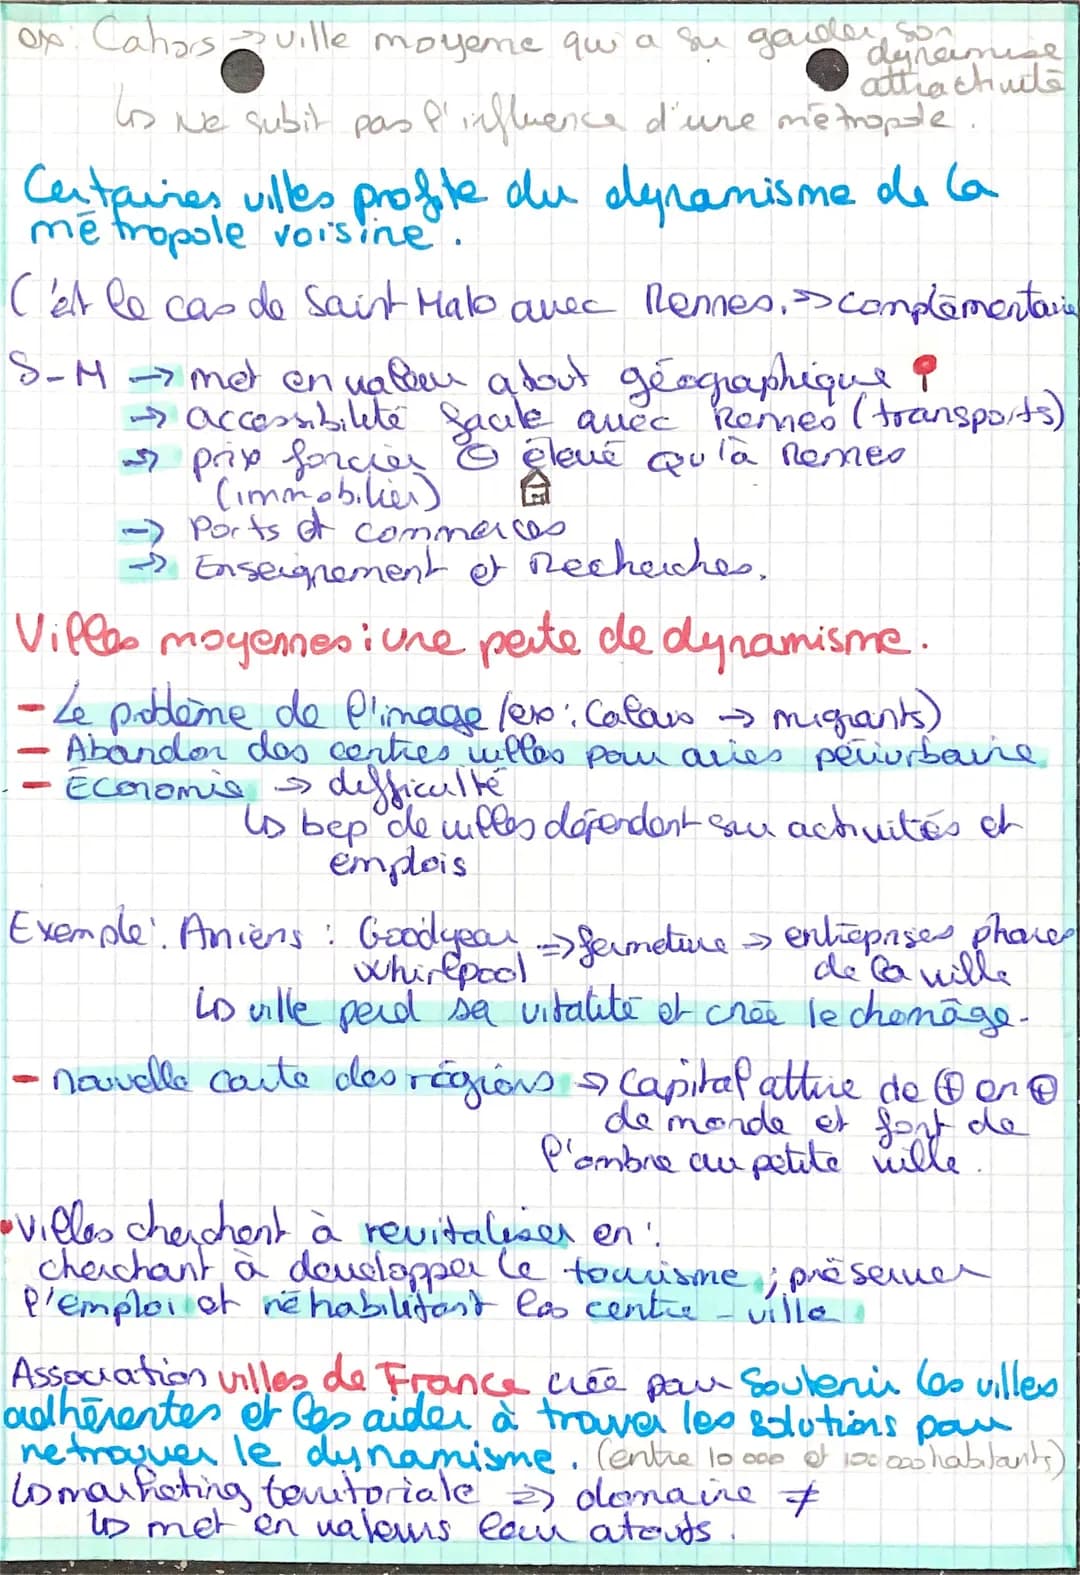 ex: Cahors → ville moyenne qui a su garder son
dynamise
attractivité
↳ Ne subit pas l'influence d'une métropole.
Certaines villes profite du dynamisme de la
métropole voisine.
C'est le cas de Saint Malo avec Rennes. ⇒ complémentaire
S-M → met en valeur atout géographique
→ accessibilité facile avec Rennes (transports)
→ prix foncier ⊖ élevé qu'à Rennes
(immobilier)
→ Ports et commerces
→ Enseignement et Recherches.
Villes moyennes : une perte de dynamisme.
- Le problème de l'image (ex: Calais → migrants)
- Abandon des centres villes pour aires périurbaine
- Économie → difficulté
↳ bcp de villes dépendent sur activités et
emplois
Exemple: Amiens : Goodyear ⇒ fermeture → entreprises phares
Whirlpool de la ville
↳ ville perd sa vitalité et crée le chomâge.
- nouvelle carte des régions → Capital attire de ⊕ en ⊕
de monde et font de
l'ombre au petite ville.
• Villes cherchent à revitaliser en :
cherchant à developper le tourisme ; préserver
l'emploi et réhabilitant les centre-ville
Association villes de France crée pour Soutenir les villes
adhérentes et les aider à trouver les solutions pour
retrouver le dynamisme. (entre 10 000 et 100 000 habitants)
↳ marketing territoriale ⇒ domaine ≠
↳ met en valeurs leur atouts.